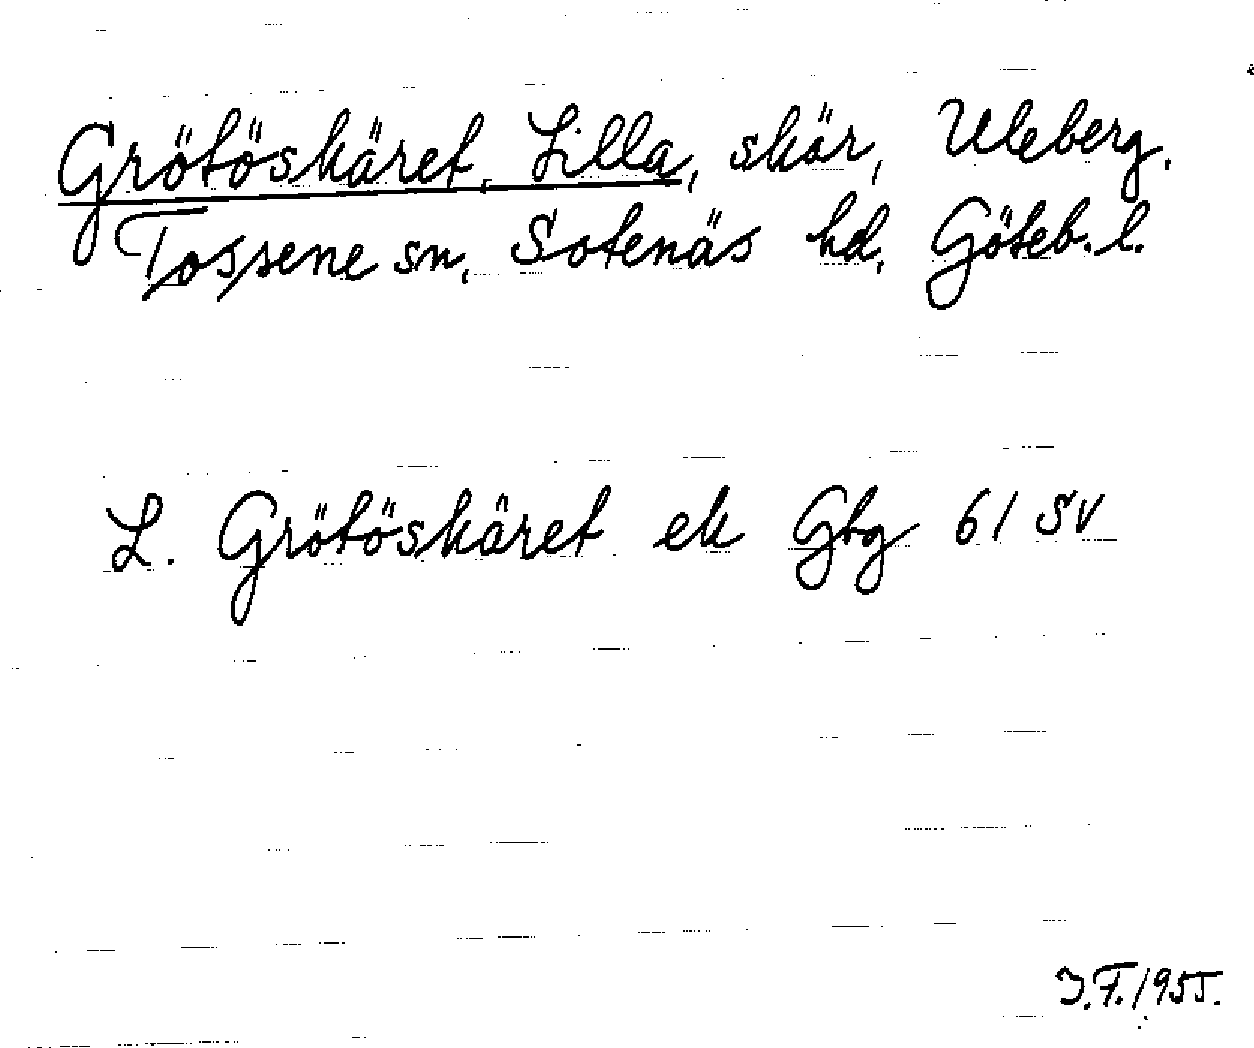 Grötöskäret, Lilla, skär, Uleberg,
Tossene sn, Sotenäs hd, Göteb. l.
L. Grötöskäret ek Gbg 61 SV
J.F. 1955.